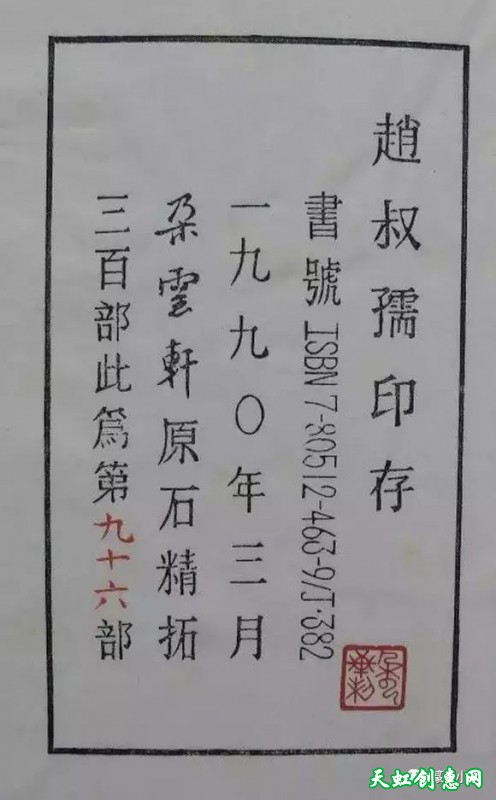 趙叔孺印存
書號ISBN7-80512-463-9/J·382
一九九〇年三月
朶雲軒原石精拓
三百部此爲第九十六部
天虹创意网